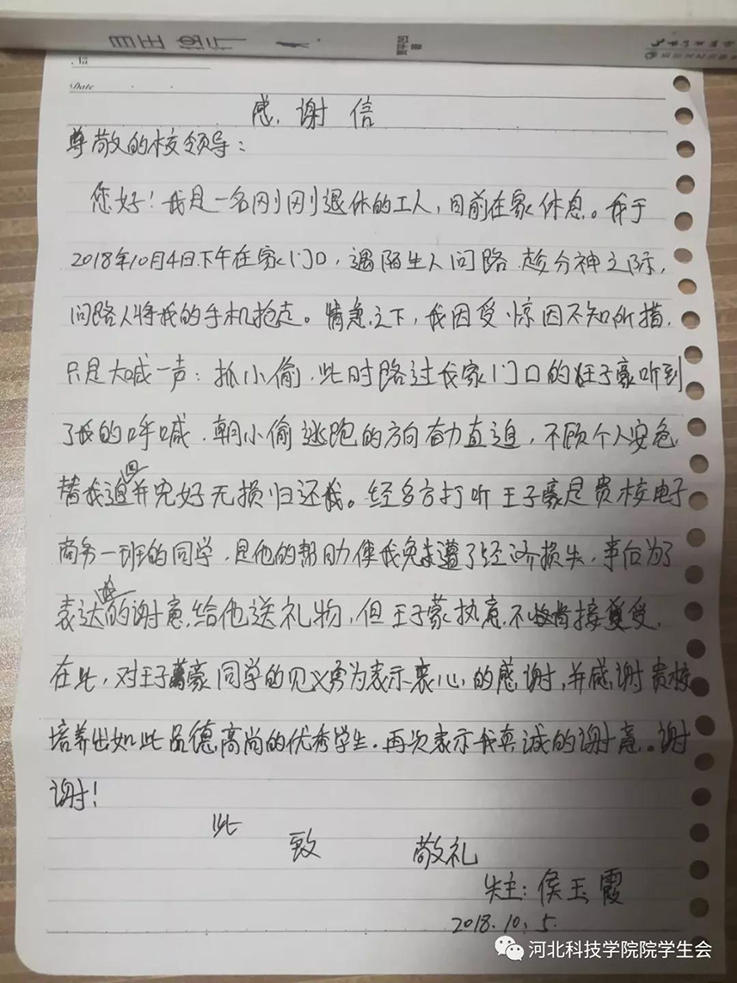 自在独行
贾平凹
著
No
Date
感谢信
尊敬的校领导:
您好!我是一名刚刚退休的工人,目前在家休息。我于
2018年10月4日下午在家门口,遇陌生人问路.趁分神之际,
问路人将我的手机抢走。情急之下,我因受惊因不知所措,
只是大喊一声:抓小偷.此时路过我家门口的王子豪听到
了我的呼喊.朝小偷逃跑的方向奋力直追,不顾个人安危
替我追回并完好无损归还我。经多方打听王子豪是贵校电子
商务一班的同学.是他的帮助使我免遭了经济损失,事后为了
表达我的谢意,给他送礼物,但王子豪执意不肯接受.
在此,对王子豪同学的见义勇为表示衷心的感谢,并感谢贵校
培养出如此品德高尚的优秀学生.再次表示我真诚的谢意。谢
谢!
此
致 敬礼
失主:侯玉霞
2018.10.5.
河北科技学院院学生会